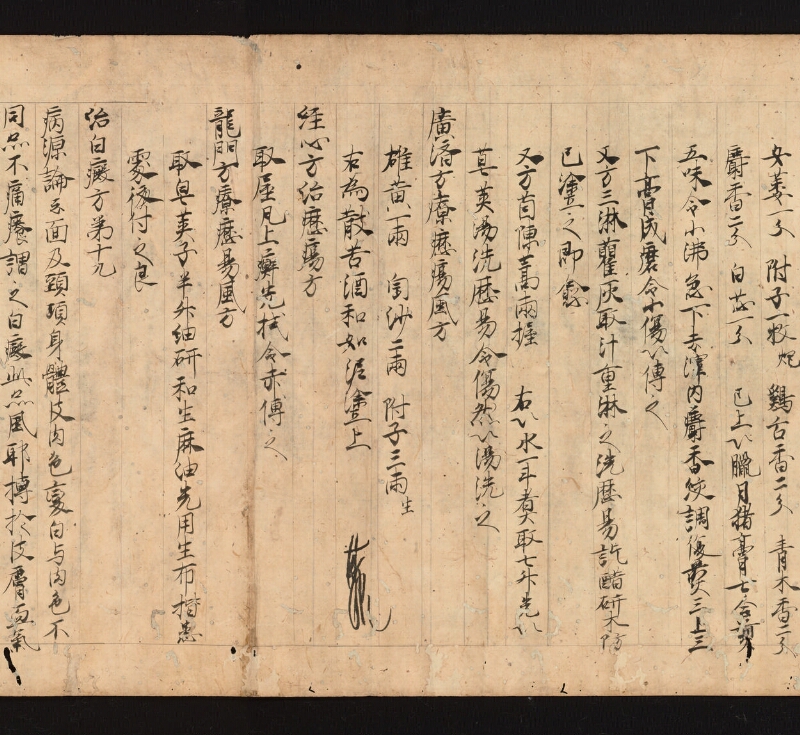 女萎一分 附子一枚炮 鷄舌香二分 青木香二分
麝香二分 白芷一分 已上以臘月猪膏七合煎
五味令小沸急下去滓内麝香絞調復煎三上三
下膏成磨令小傷以傅之
又方三淋藋灰取汁重淋之洗歴昜訖醋研木防
已塗之即愈
又方茵陳蒿兩握 右以水一斗煮取七升先以
皂莢湯洗歴昜令傷然以湯洗之
廣済方療歴瘍風方
雄黄一兩 匋沙二兩 附子三兩生
右為散苦酒和如泥塗上
経心方治歴瘍方
取屋瓦上癬先拭令赤傅之
龍門方療歴昜風方
取皂莢子半升細研和生麻油先用生布揩患
處後付之良
治白癜方第十九
病源論云面及頸項身體皮肉色變白与肉色不
同亦不痛癢謂之白癜此亦風耶搏於皮膚血氣